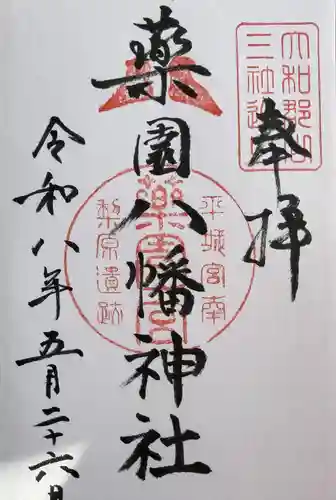 大和郡山
三社巡
奉拝
薬園八幡神社
平城宮南
梨原遺跡
令和八年五月二十六日